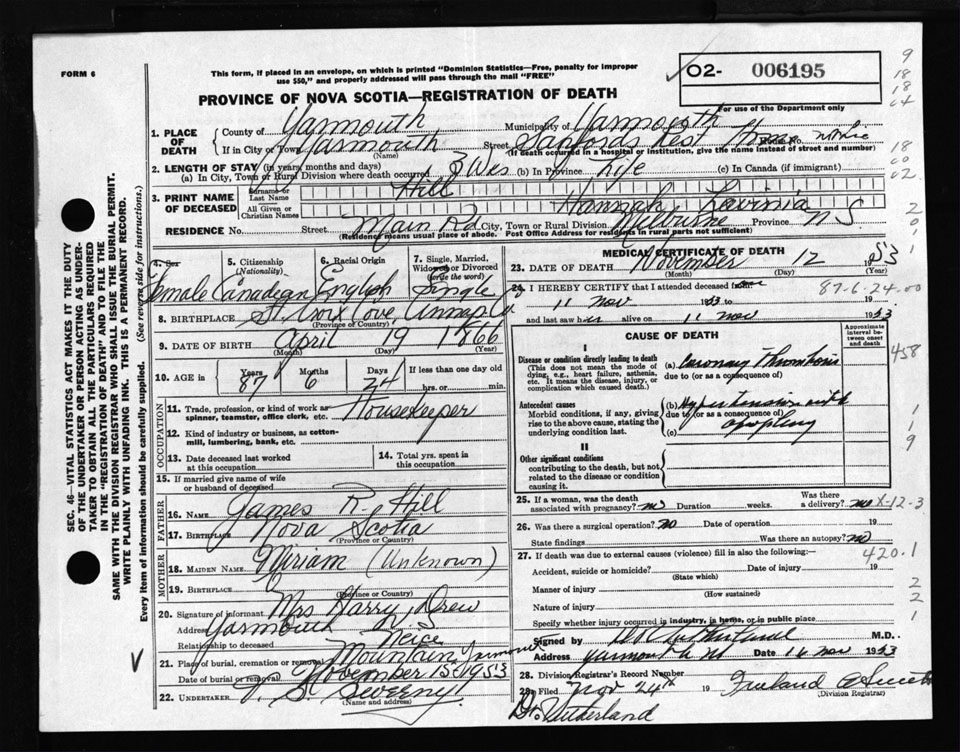 FORM 6
This form, if placed in an envelope, on which is printed "Dominion Statistics—Free, penalty for improper
use $50," and properly addressed will pass through the mail "FREE"
02- 006195
For use of the Department only
PROVINCE OF NOVA SCOTIA—REGISTRATION OF DEATH
9
18
18
64
18
60
02
2
0
1
1. PLACE OF DEATH
County of Yarmouth Municipality of Yarmouth
If in City or Town Yarmouth Street Sanfords Rest Home
(Name) (If death occurred in a hospital or institution, give the name instead of street and number)
2. LENGTH OF STAY (in years, months and days)
(a) In City, Town or Rural Division where death occurred 3 Wks (b) In Province Life (c) In Canada (if immigrant)
3. PRINT NAME OF DECEASED
Surname or Last Name Hill
All Given or Christian Names Hannah Lavinia
RESIDENCE No. Street Main Rd City, Town or Rural Division Province N S
(Residence means usual place of abode. Post Office Address for residents in rural parts not sufficient)
SEC. 46—VITAL STATISTICS ACT MAKES IT THE DUTY
OF THE UNDERTAKER OR PERSON ACTING AS UNDER-
TAKER TO OBTAIN ALL THE PARTICULARS REQUIRED
IN THE "REGISTRATION OF DEATH" AND TO FILE THE
SAME WITH THE DIVISION REGISTRAR WHO SHALL ISSUE THE BURIAL PERMIT.
WRITE PLAINLY WITH UNFADING INK. THIS IS A PERMANENT RECORD.
Every item of information should be carefully supplied. (See reverse side for instructions.)
4. Sex 5. Citizenship (Nationality) 6. Racial Origin 7. Single, Married, Widowed or Divorced (Write the word)
Female Canadian English Single
8. BIRTHPLACE St. Croix Cove Annap. Co
(Province or Country)
9. DATE OF BIRTH April 19 1866
(Month) (Day) (Year)
10. AGE in Years 87 Months 6 Days 24 If less than one day old
hrs. or min.
OCCUPATION
11. Trade, profession, or kind of work as spinner, teamster, office clerk, etc. Housekeeper
12. Kind of industry or business, as cotton-mill, lumbering, bank, etc.
13. Date deceased last worked at this occupation
14. Total yrs. spent in this occupation
15. If married give name of wife or husband of deceased
FATHER
16. NAME James R. Hill
17. BIRTHPLACE Nova Scotia
(Province or Country)
MOTHER
18. MAIDEN NAME Miriam (Unknown)
19. BIRTHPLACE
(Province or Country)
20. Signature of informant Mrs Harry Drew
Address Yarmouth N. S
Relationship to deceased Neice
21. Place of burial, cremation or removal Mountain, Yarmouth
Date of burial or removal November 15 1953
22. UNDERTAKER V. S. Sweeny
(Name and address)
MEDICAL CERTIFICATE OF DEATH
23. DATE OF DEATH November 12 1953
(Month) (Day) (Year)
24. I HEREBY CERTIFY that I attended deceased from
11 Nov 1953
and last saw her alive on 11 Nov 1953
87-6-24-00
CAUSE OF DEATH
Approximate interval between onset and death
I
Disease or condition directly leading to death
(This does not mean the mode of dying, e.g., heart failure, asthenia, etc. It means the disease, injury, or complication which caused death.)
(a) Coronary Thrombosis
due to (or as a consequence of)
Antecedent causes
Morbid conditions, if any, giving rise to the above cause, stating the underlying condition last.
(b) Hypertension with
due to (or as a consequence of)
(c) apoplexy
II
Other significant conditions
contributing to the death, but not related to the disease or condition causing it.
458
1
1
9
25. If a woman, was the death associated with pregnancy? no Duration weeks. Was there a delivery? no
X-12-3
26. Was there a surgical operation? no Date of operation 19
State findings Was there an autopsy? no
27. If death was due to external causes (violence) fill in also the following:—
420.1
Accident, suicide or homicide? Date of injury 19
(State which)
Manner of injury
(How sustained)
Nature of injury
Specify whether injury occurred in industry, in home, or in public place
2
2
1
Signed by M.D.
Address Yarmouth NS Date 14 Nov 1953
28. Division Registrar's Record Number
29. Filed Nov 24th 19
(Division Registrar)
Dr. Sutherland